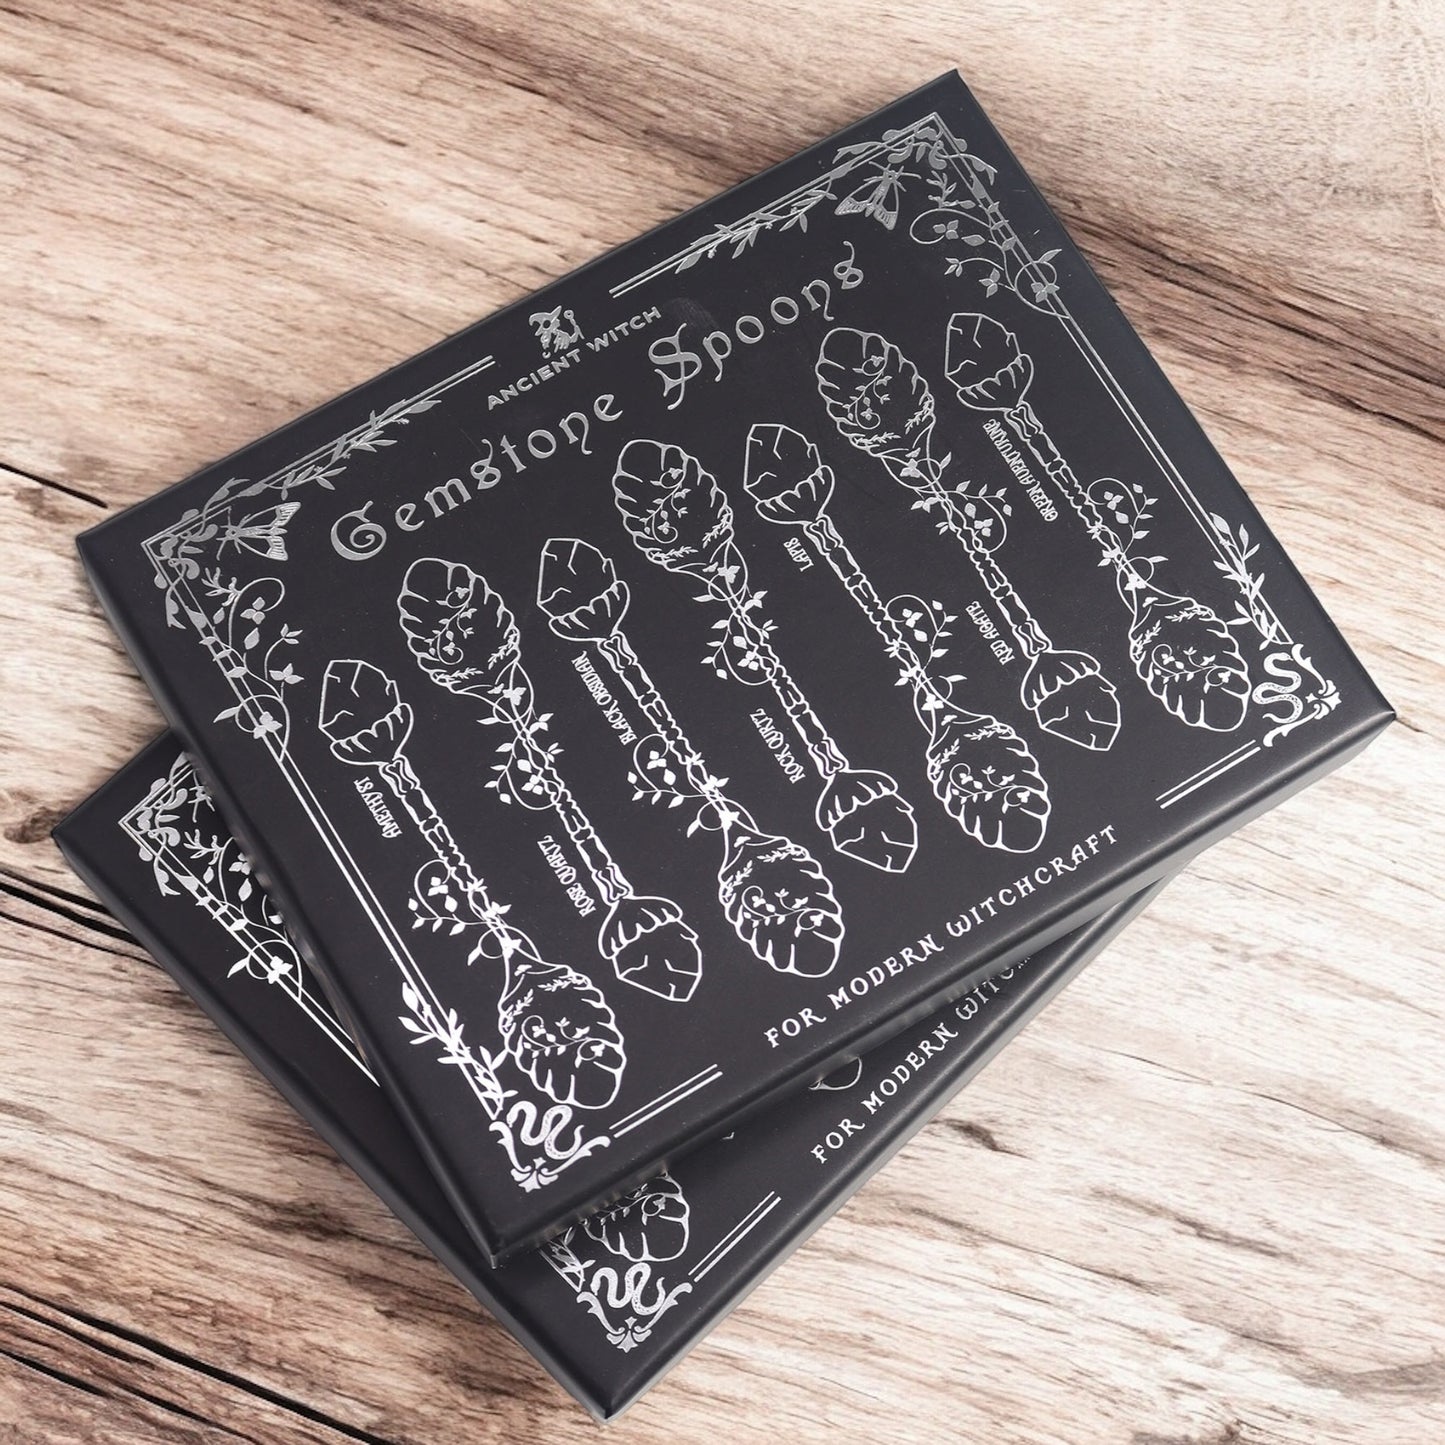 ANCIENT WITCH
Gemstone Spoons
AMETHYST
ROSE QUARTZ
BLACK OBSIDIAN
ROCK QURTZ
LAPIS
RED AGATE
GREEN AVENTURINE
FOR MODERN WITCHCRAFT
FOR MODERN WITC